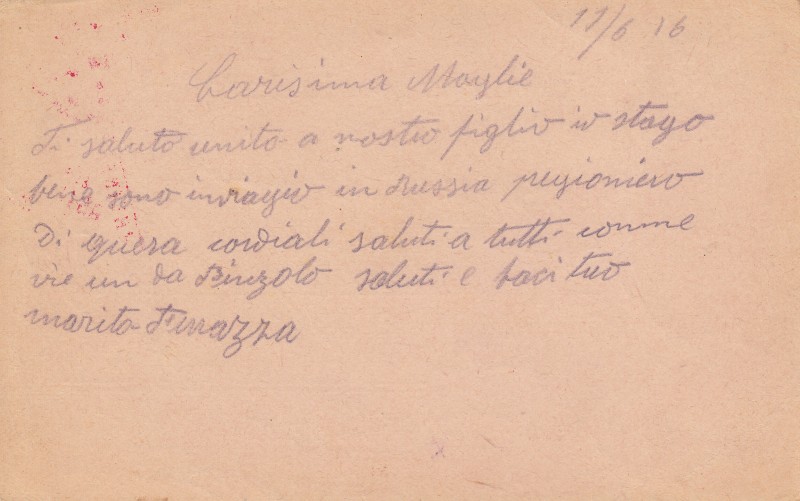 11/6 16
Carisima Moglie
Ti saluto unito a nostro figlio io stago
bene sono inviagio in Russia pregioniero
Di guera cordiali saluti a tutti conme
vie un da Pinzolo saluti e baci tuo
marito